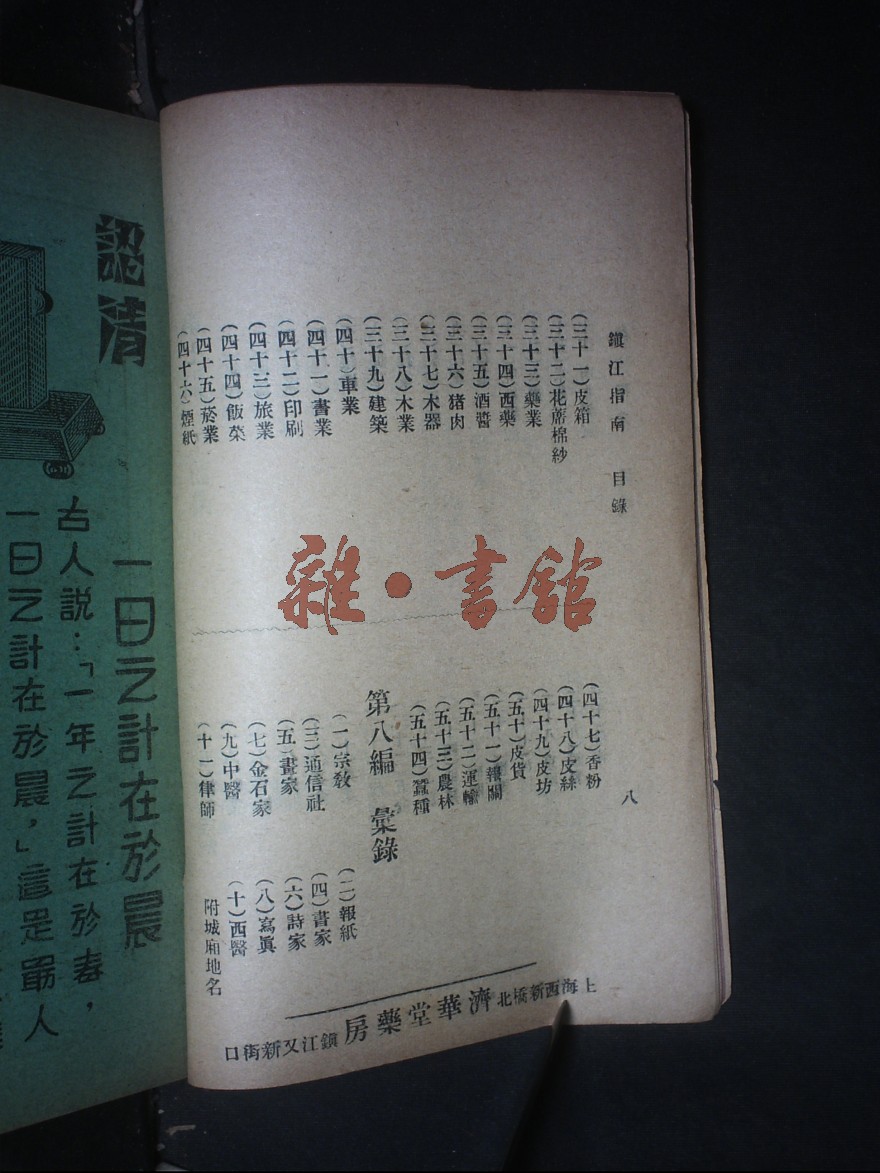 鎮江指南　目錄
八
(三十一)皮箱
(三十二)花蓆棉紗
(三十三)藥業
(三十四)西藥
(三十五)酒醬
(三十六)猪肉
(三十七)木器
(三十八)木業
(三十九)建築
(四十)車業
(四十一)書業
(四十二)印刷
(四十三)旅業
(四十四)飯菜
(四十五)菸業
(四十六)煙紙
(四十七)香粉
(四十八)皮絲
(四十九)皮坊
(五十)皮貨
(五十一)報關
(五十二)運輸
(五十三)農林
(五十四)蠶種
第八編　彙錄
(一)宗敎
(二)報紙
(三)通信社
(四)書家
(五)畫家
(六)詩家
(七)金石家
(八)寫眞
(九)中醫
(十)西醫
(十一)律師
附城廂地名
上海西新橋北濟華堂藥房鎮江又新街口
雜·書館
認清
一日之計在於晨
古人說：「一年之計在於春，
一日之計在於晨，」這是最人